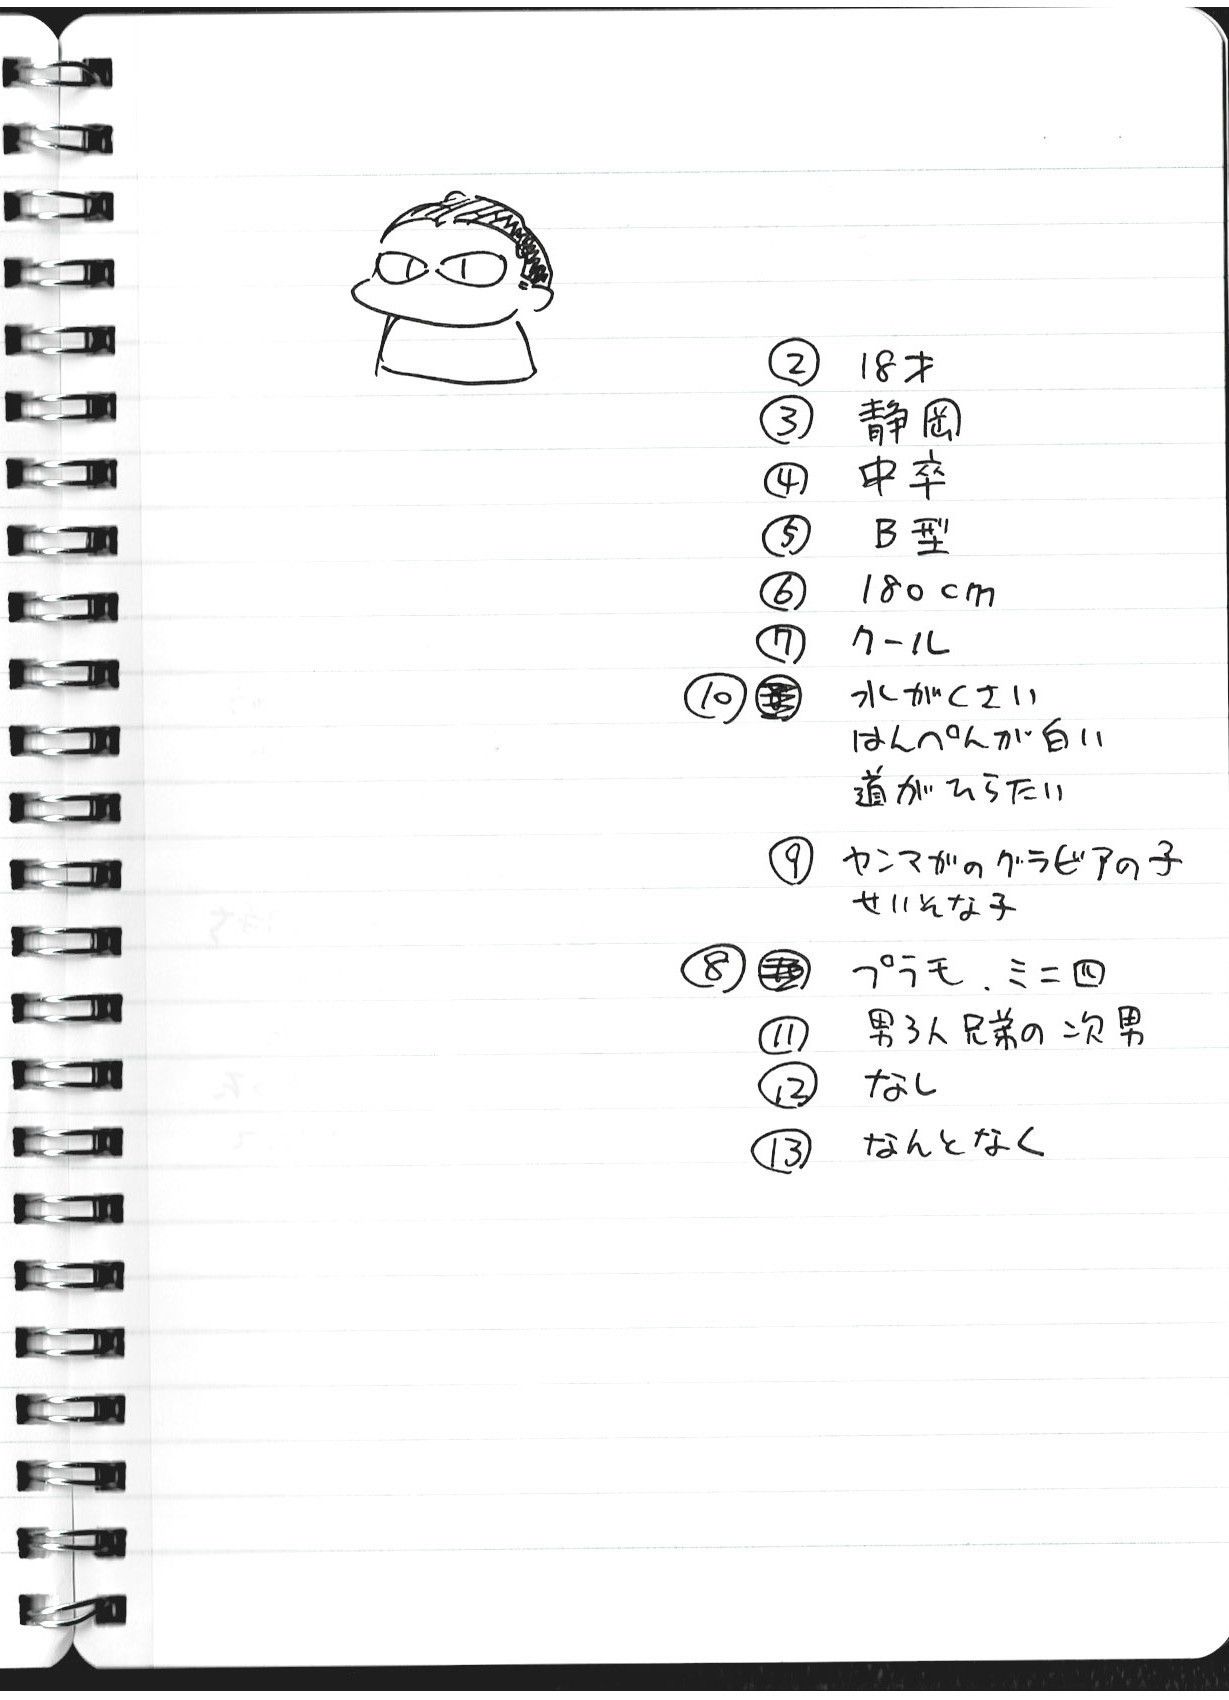 ② 18才
③ 静岡
④ 中卒
⑤ B型
⑥ 180cm
⑦ クール
⑩ 水がくさい
はんぺんが白い
道がひらたい
⑨ ヤンマガのグラビアの子
せいそな子
⑧ プラモ.ミニ四
⑪ 男3人兄弟の次男
⑫ なし
⑬ なんとなく